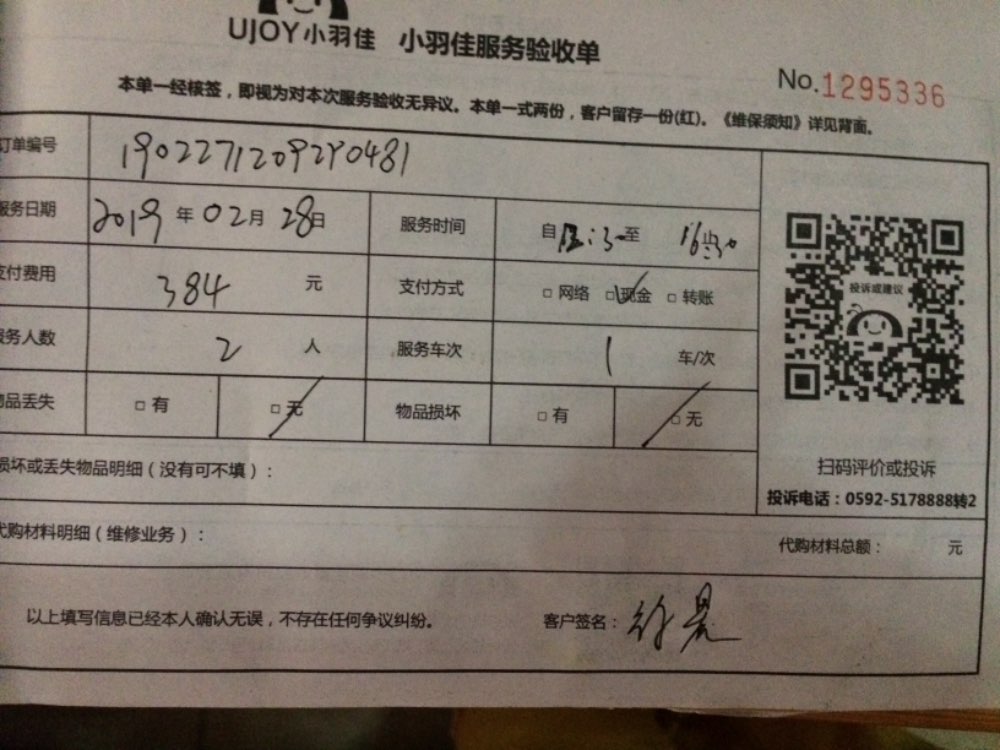 UJOY小羽佳 小羽佳服务验收单
No.1295336
本单一经核签，即视为对本次服务验收无异议。本单一式两份，客户留存一份(红)。《维保须知》详见背面。
订单编号 1902271209290481
服务日期 2019年02月28日 服务时间 自12:30至 16:30
支付费用 384 元 支付方式 □网络 □现金 □转账
投诉或建议
服务人数 2 人 服务车次 1 车/次
物品丢失 □有 □无 物品损坏 □有 □无
损坏或丢失物品明细（没有可不填）：
扫码评价或投诉
投诉电话：0592-5178888转2
代购材料明细（维修业务）：
代购材料总额： 元
以上填写信息已经本人确认无误，不存在任何争议纠纷。 客户签名：